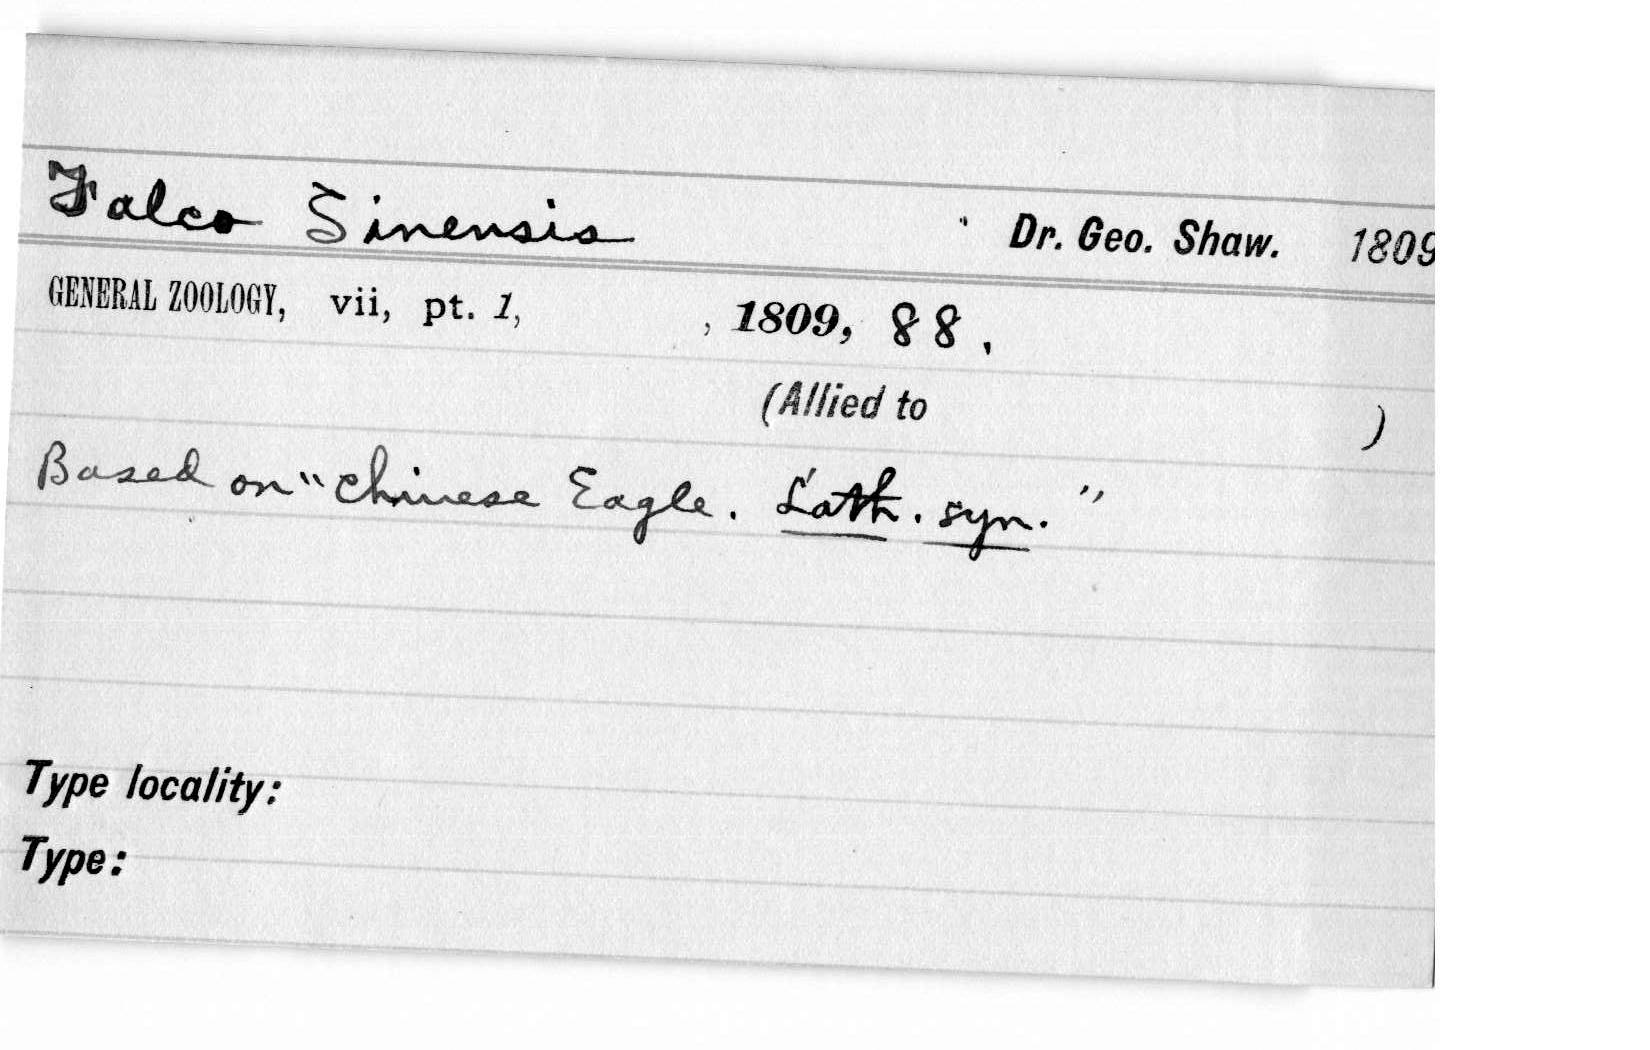 Falco Sinensis Dr. Geo. Shaw. 1809
GENERAL ZOOLOGY, vii, pt. 1, , 1809, 88.
(Allied to )
Based on "Chinese Eagle. Lath. syn."
Type locality:
Type: